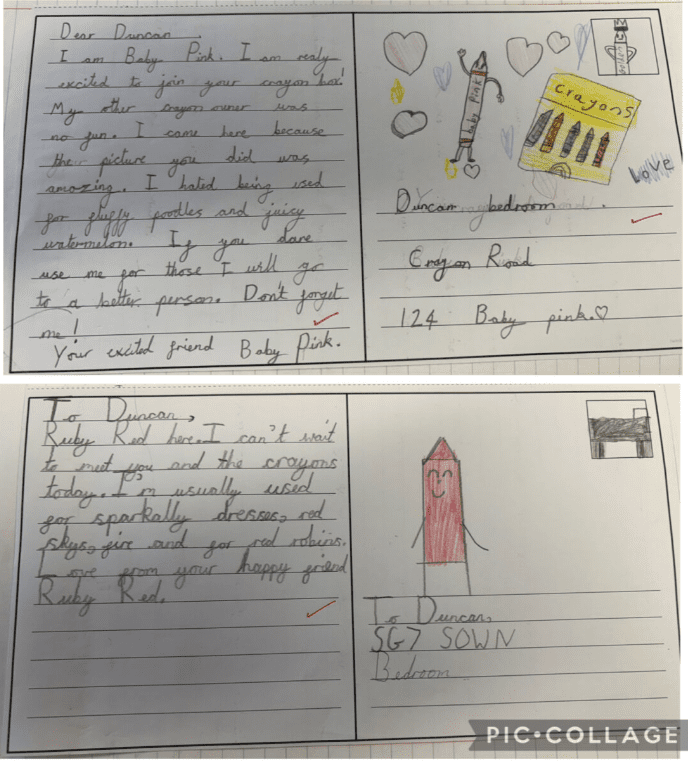 Dear Duncan
I am Baby Pink. I am realy
excited to join your crayon box!
My other crayon owner was
no fun. I came here because
the picture you did was
amazing. I hated being used
for fluffy poodles and juicy
watermelon. If you dare
use me for those I will go
to a better person. Don't forget
me!
Your excited friend Baby Pink.
baby Pink
Crayons
Love
Duncan bedroom.
Crayon Road
124 Baby pink.♡
To Duncan,
Ruby Red here. I can't wait
to meet you and the crayons
today. I'm usually used
for sparkally dresses, red
skys, fire and for red robins.
Love from your happy friend
Ruby Red.
To Duncan,
SG7 SOWN
Bedroom
PIC•COLLAGE